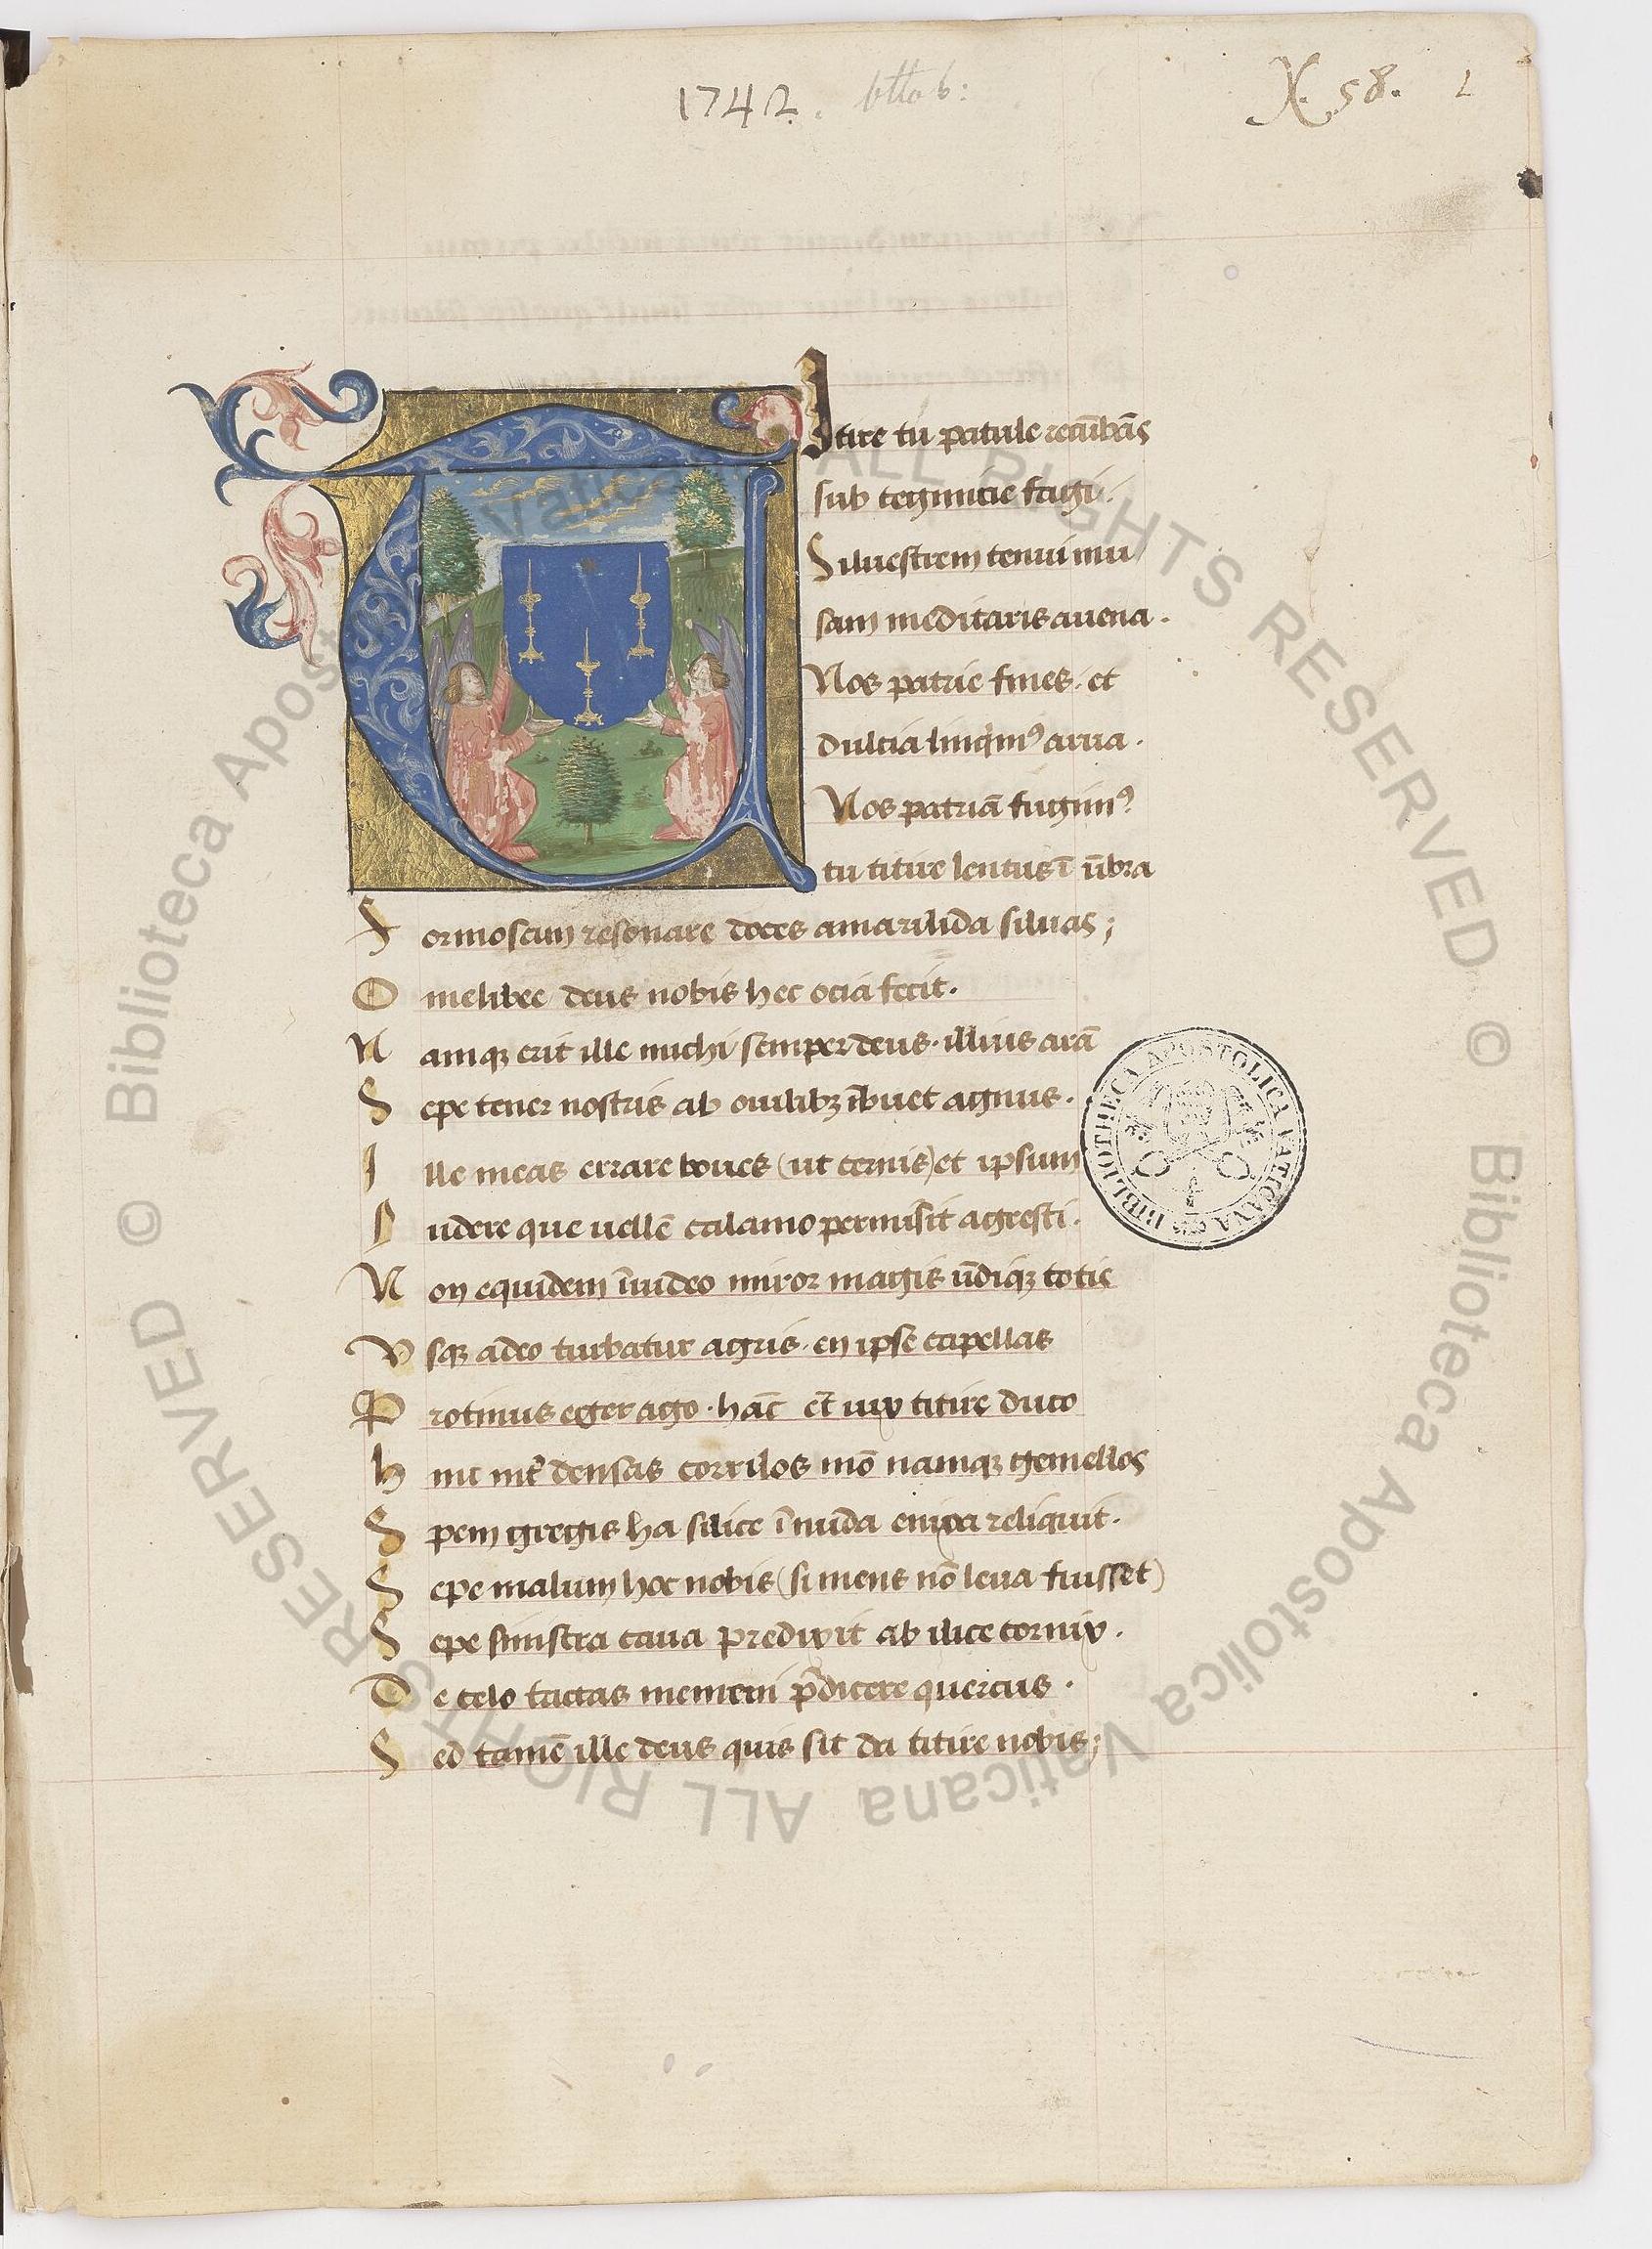 1742. Ottob:
X. 58. 1
Titire tu patule recūbās
sub tegmine fagi.
Siluestrem tenui mu
sam meditaris auena.
Nos patrie fines. et
dulcia linqimꝰ arua.
Nos patriā fugimꝰ
tu titire lentus ī ūbra
Formosam resonare doces amarilida siluas;
O melibee deus nobis hec ocia fecit.
Namqꝫ erit ille michi semper deus. illius arā
Sepe tener nostris ab ouilibꝫ ībuet agnus.
Ille meas errare boues (ut cernis) et ipsum
Ludere que uellē calamo permisit agresti.
Non equidem īuideo miror magis ūdiqꝫ totis
Vsqꝫ adeo turbatur agris. en ipse capellas
Protinus eger ago. hāc et̄ uix titire duco
Hic int̄ densas corrilos mō namqꝫ gemellos
Spem gregis ha silice ī nuda enixa reliquit.
Sepe malum hoc nobis (si mens nō leua fuisset)
Sepe sinistra caua predixit ab ilice cornix.
De celo tactas memini p̄dicere quercus.
Sed tamē ille deus quis sit da titire nobis;
BIBLIOTHECA APOSTOLICA VATICANA
© Biblioteca Apostolica Vaticana ALL RIGHTS RESERVED © Biblioteca Apostolica Vaticana ALL RIGHTS RESERVED